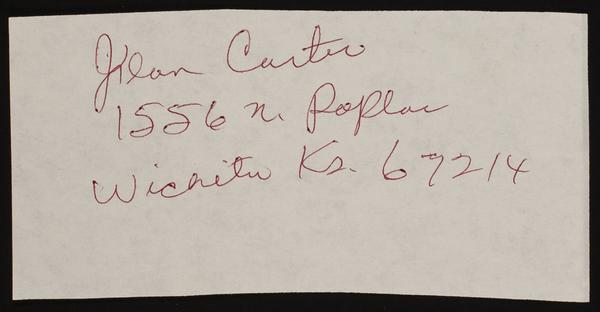 Carter
1556 N. Poplar
Wichita Ks. 67214